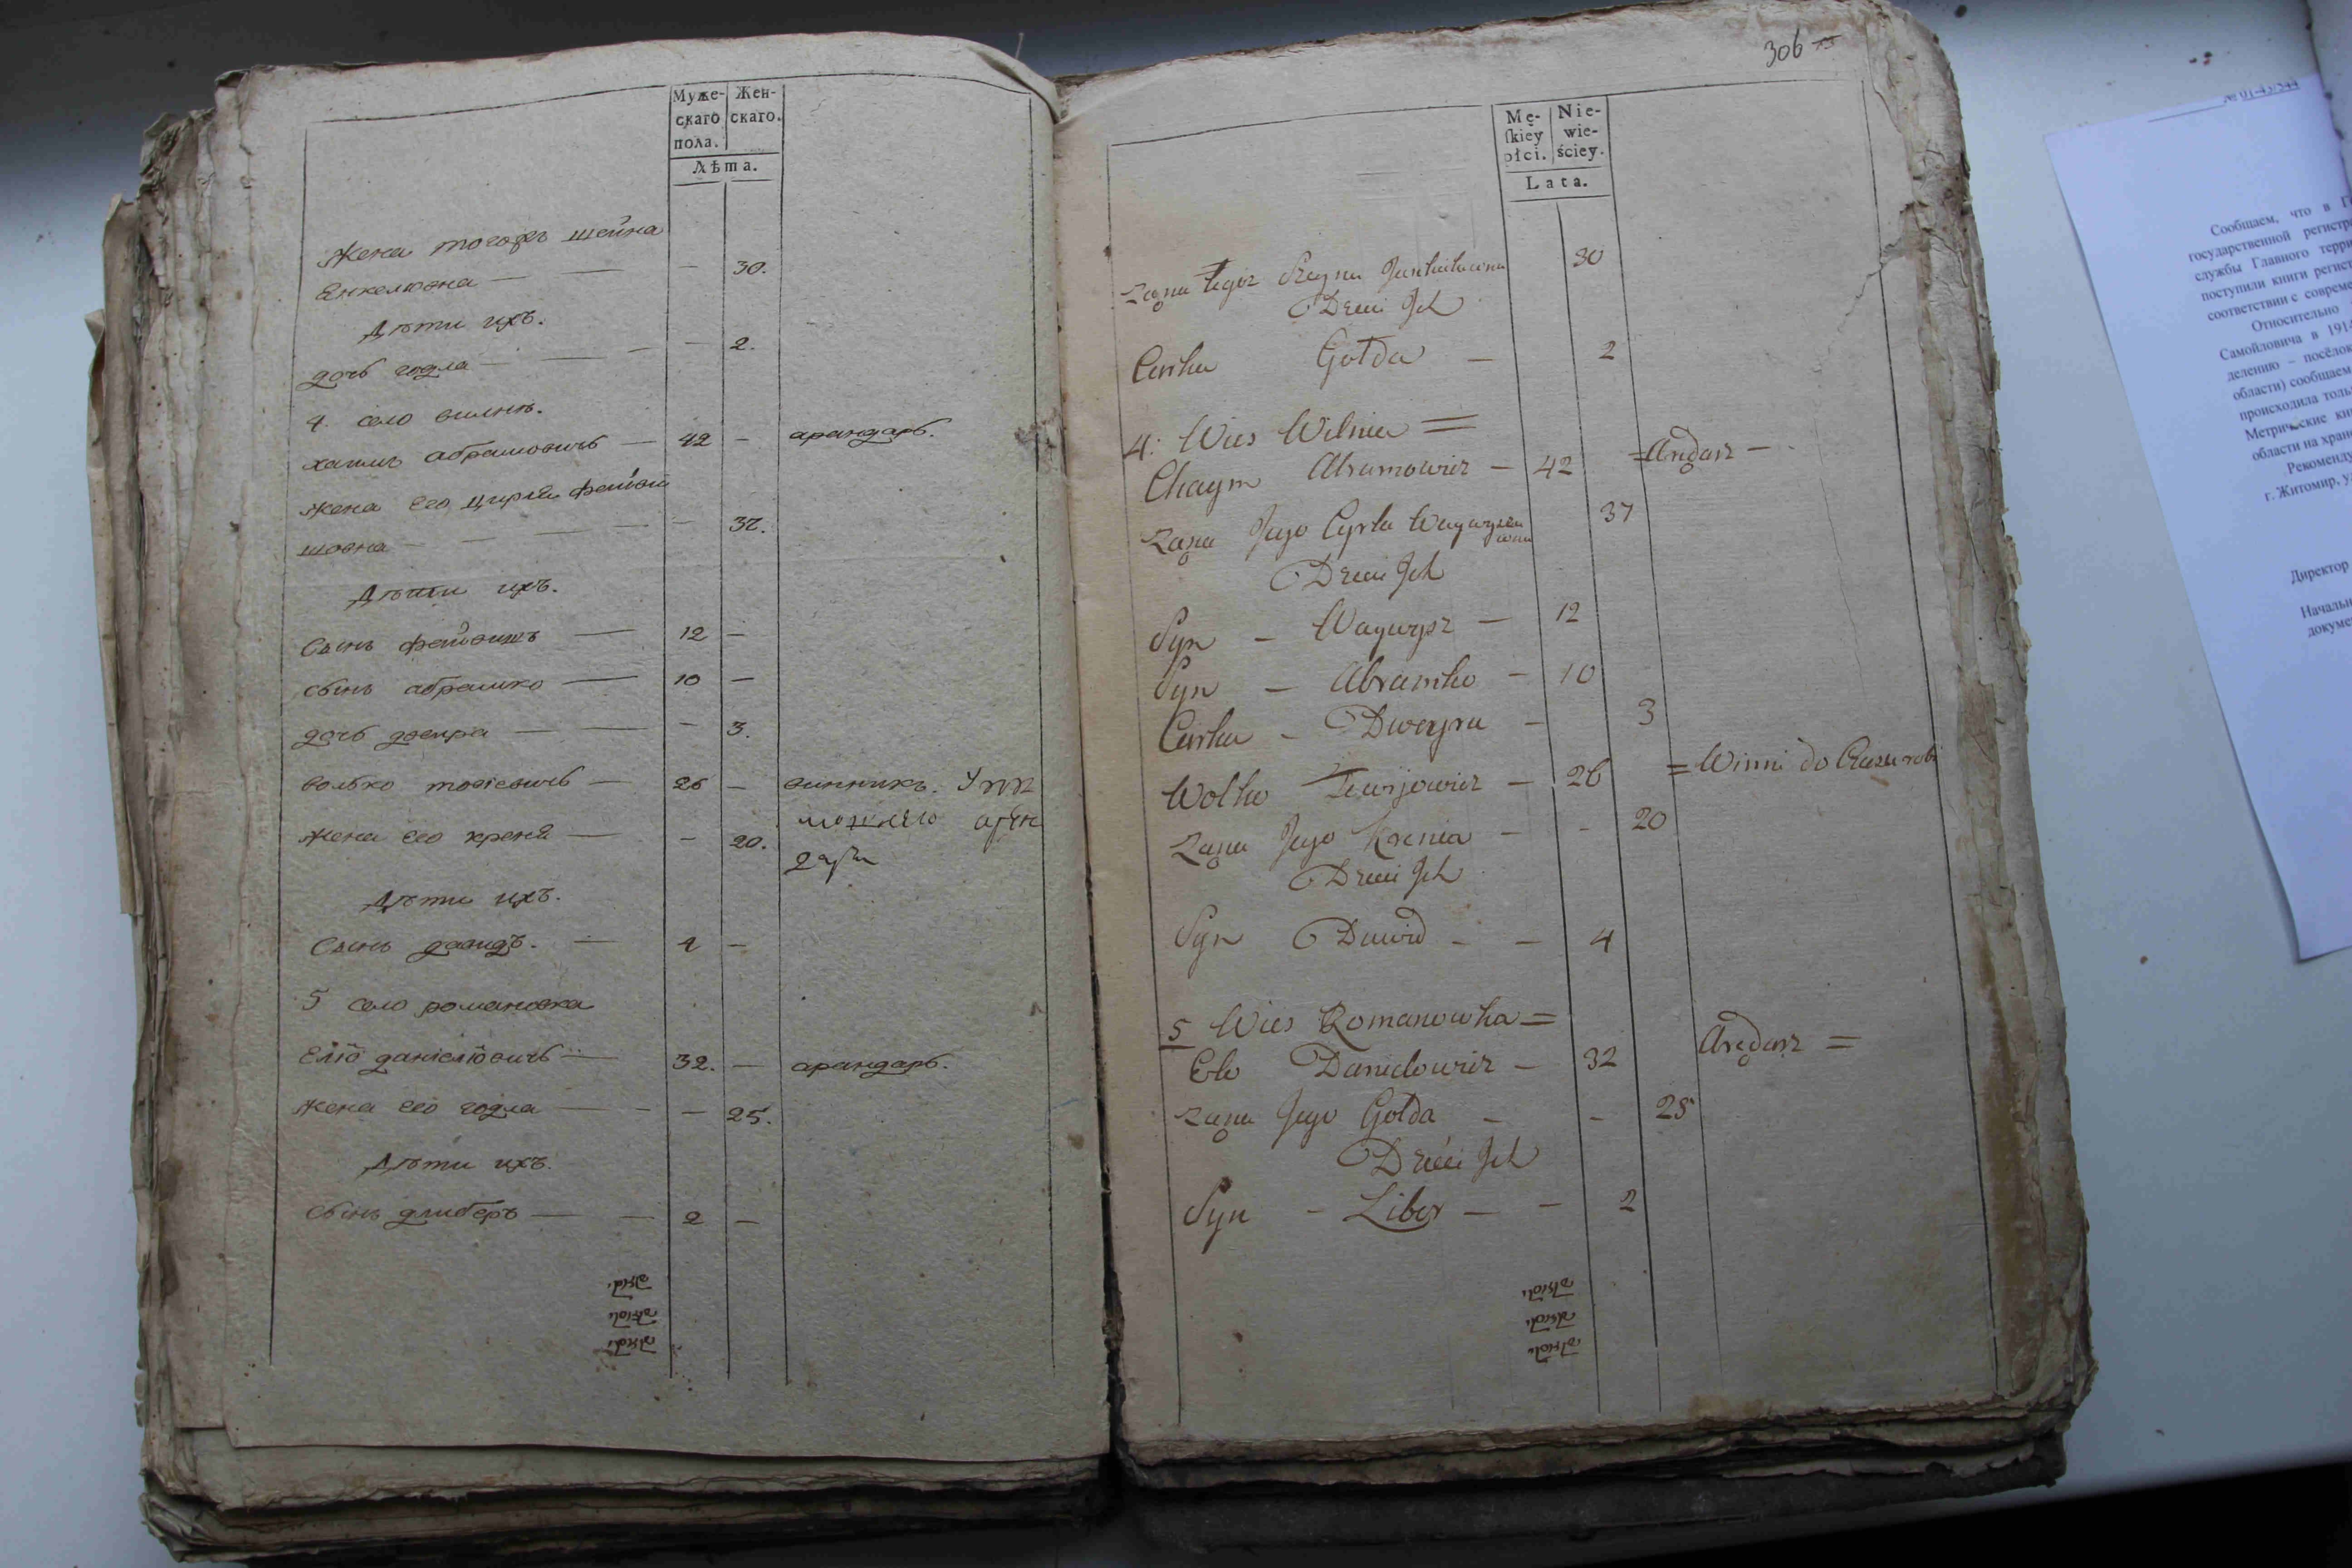 Муже-
скаго
пола.
Жен-
скаго.
Лѣта.
жена тогожъ шейна
Енкелювна — — — 30.
Дѣти ихъ.
дочь годла — — — — 2.
4. село вилня.
хаимъ абрамовичъ — 42 — арандарь.
жена Его Цирля фейви
шовна — — — — 37.
Дѣти ихъ.
Сынъ фейвишъ — 12 —
сынъ абрашко — 10 —
дочь двейра — — — 3.
волько товіевичъ — 26 — винникъ. У тя
жена его креня — — 20. можнаго арен
даря
Дѣти ихъ.
Сынъ давидъ. — 4 —
5 село романовка
Еліо даніеліовичъ — 32. — арандарь.
жена его годла — — — 25.
Дѣти ихъ.
сынъ длиберъ — — 2 —
306
Mę-
ſkiey
płci.
Nie-
wie-
ściey.
Lata.
Żona tegoż Szeyna Jankielowna 30
Dzieci Jch
Curka Gołda — 2
4: Wies Wilnia =
Chaym Abramowicz — 42 = Arędarz —
Żona Jego Cyrla Waywyszo
wna 37
Dzieci Jch
Syn — Waywysz — 12
Syn — Abramko — 10
Curka — Dweyra — 3
Wolko Tewijowicz — 26 = Winni do Czasu robi
Żona Jego Krenia — - 20
Dzieci Jch
Syn Dawid — — 4
5 Wies Romanowka =
Elo Danielowicz — 32 Arędarz =
Żona Jego Gołda — - 25
Dzieci Jch
Syn — Liber — — 2
Сообщаем, что в Г
государственной регистр
службы Главного терри
поступили книги регист
соответствии с совреме
Относительно
Самойловича в 1914
делению – посёлок
области) сообщаем
происходила толь
Метрические кн
области на хран
Рекоменду
г. Житомир, у
Директор
Начальн
докуме